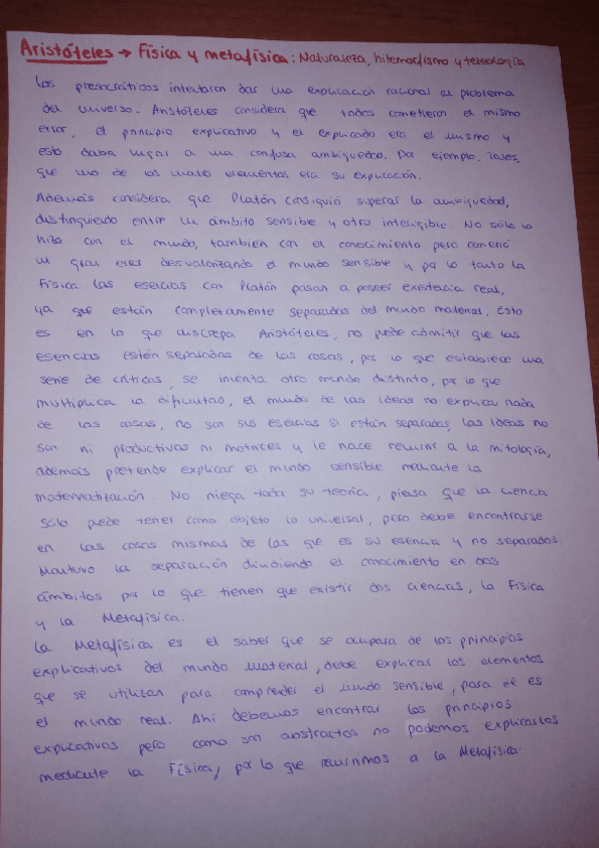 Aristóteles → Física y metafísica: Naturaleza, hilemorfismo y teleología
Los presocráticos intentaron dar una explicación racional al problema
del universo. Aristóteles considera que todos cometieron el mismo
error, el principio explicativo y el explicado era el mismo y
esto daba lugar a una confusa ambigüedad. Por ejemplo, Tales,
que uno de los cuatro elementos era su explicación.
Además considera que Platón consiguió superar la ambigüedad,
distinguiendo entre un ámbito sensible y otro inteligible. No sólo lo
hizo con el mundo, también con el conocimiento pero cometió
un gran error desvalorizando el mundo sensible y por lo tanto la
Física. Las esencias con Platón pasan a poseer existencia real,
ya que están completamente separadas del mundo material. Esto
es en lo que discrepa Aristóteles, no puede admitir que las
esencias estén separadas de las cosas, por lo que establece una
serie de críticas, se inventa otro mundo distinto, por lo que
multiplica la dificultad, el mundo de las Ideas no explica nada
de las cosas, no son sus esencias si están separadas, las Ideas no
son ni productivas ni motrices y le hace recurrir a la mitología,
además pretende explicar el mundo sensible mediante la
matematización. No niega toda su teoría, piensa que la ciencia
sólo puede tener como objeto lo universal, pero debe encontrarse
en las cosas mismas de las que es su esencia y no separados.
Mantuvo la separación dividiendo el conocimiento en dos
ámbitos por lo que tienen que existir dos ciencias, la Física
y la Metafísica.
La Metafísica es el saber que se ocupará de los principios
explicativos del mundo material, debe explicar los elementos
que se utilizan para comprender el mundo sensible, para él es
el mundo real. Ahí debemos encontrar los principios
explicativos pero como son abstractos no podemos explicarlos
mediante la Física, por lo que recurrimos a la Metafísica.